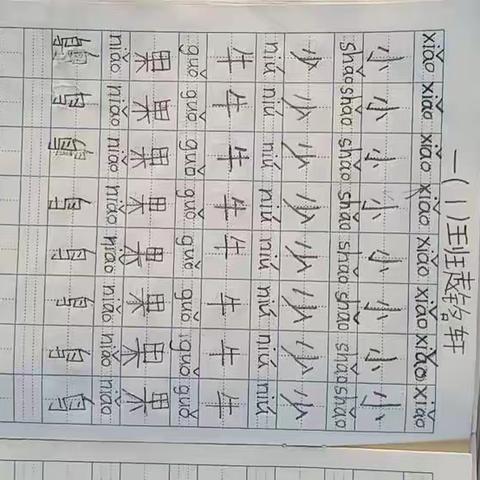 一(1)班赵铭轩
xiǎo xiǎo xiǎo xiǎo xiǎo xiǎo xiǎo xiǎo
小 小 小 小 小 小 小 小
shǎo shǎo shǎo shǎo shǎo shǎo shǎo shǎo
少 少 少 少 少 少 少 少
niú niú niú niú niú niú niú niú
牛 牛 牛 牛 牛 牛 牛 牛
guǒ guǒ guǒ guǒ guǒ guǒ guǒ guǒ
果 果 果 果 果 果 果 果
niǎo niǎo niǎo niǎo niǎo niǎo niǎo niǎo
鸟 鸟 鸟 鸟 鸟 鸟 鸟 鸟